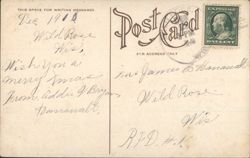 THIS SPACE FOR WRITING MESSAGES
Post Card
FOR ADDRESS ONLY
Dec 1910
Wild Rose
Wis,
Wish you a
merry Xmas
From Addie
Mr James
Wild Rose
Wis
R.F.D.